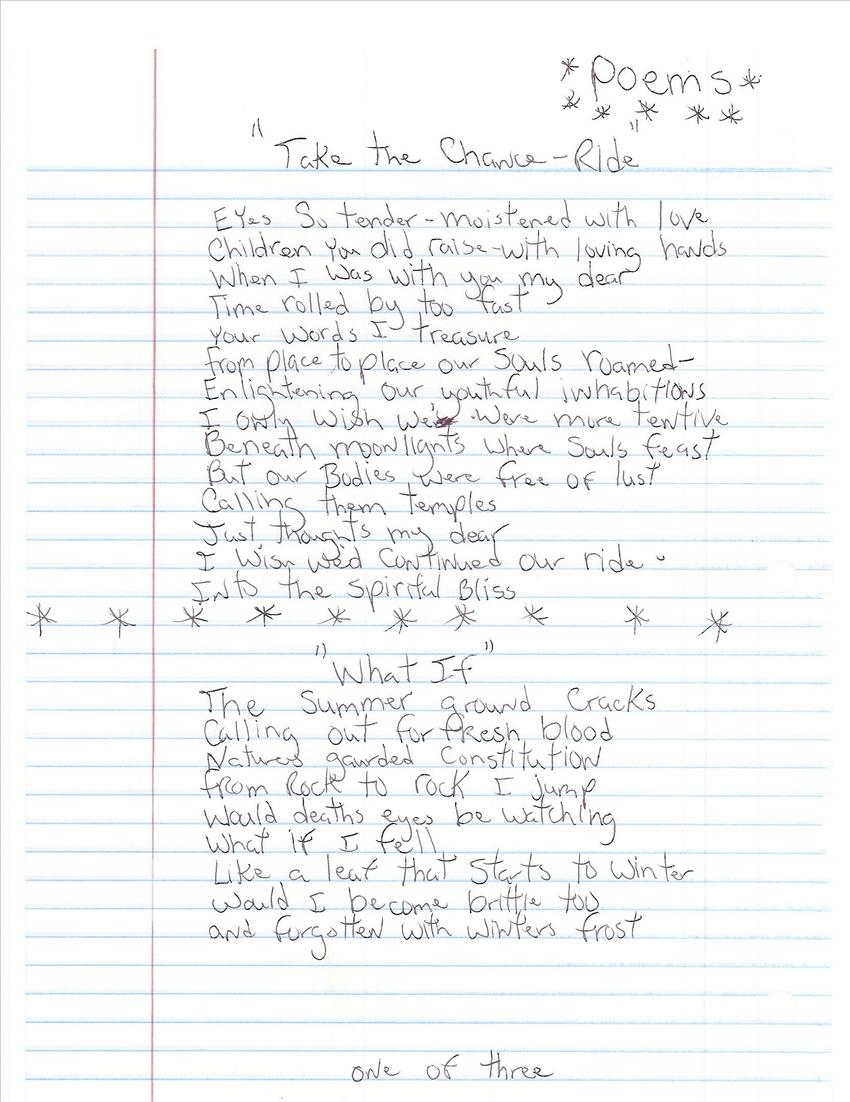 *Poems*
* * * * *
"Take the Chance-Ride"
Eyes So tender-moistened with love
Children You did raise-with loving hands
When I Was with you my dear
Time rolled by too fast
Your Words I treasure
from place to place our Souls roamed-
Enlightening our youthful inhabitions
I only Wish we'd were more tentive
Beneath moonlights where Souls feast
But our Bodies were free of lust
Calling them temples
Just thoughts my dear
I Wish we'd Continued our ride.
Into the Spirital Bliss
* * * * * * * * * *
"What If"
The Summer ground Cracks
Calling out for fresh blood
Natures gaurded Constitution
from Rock to rock I jump
Would deaths eyes be watching
What if I fell
Like a leaf that Starts to Winter
Would I become brittle too
and forgotten with Winters frost
one of three